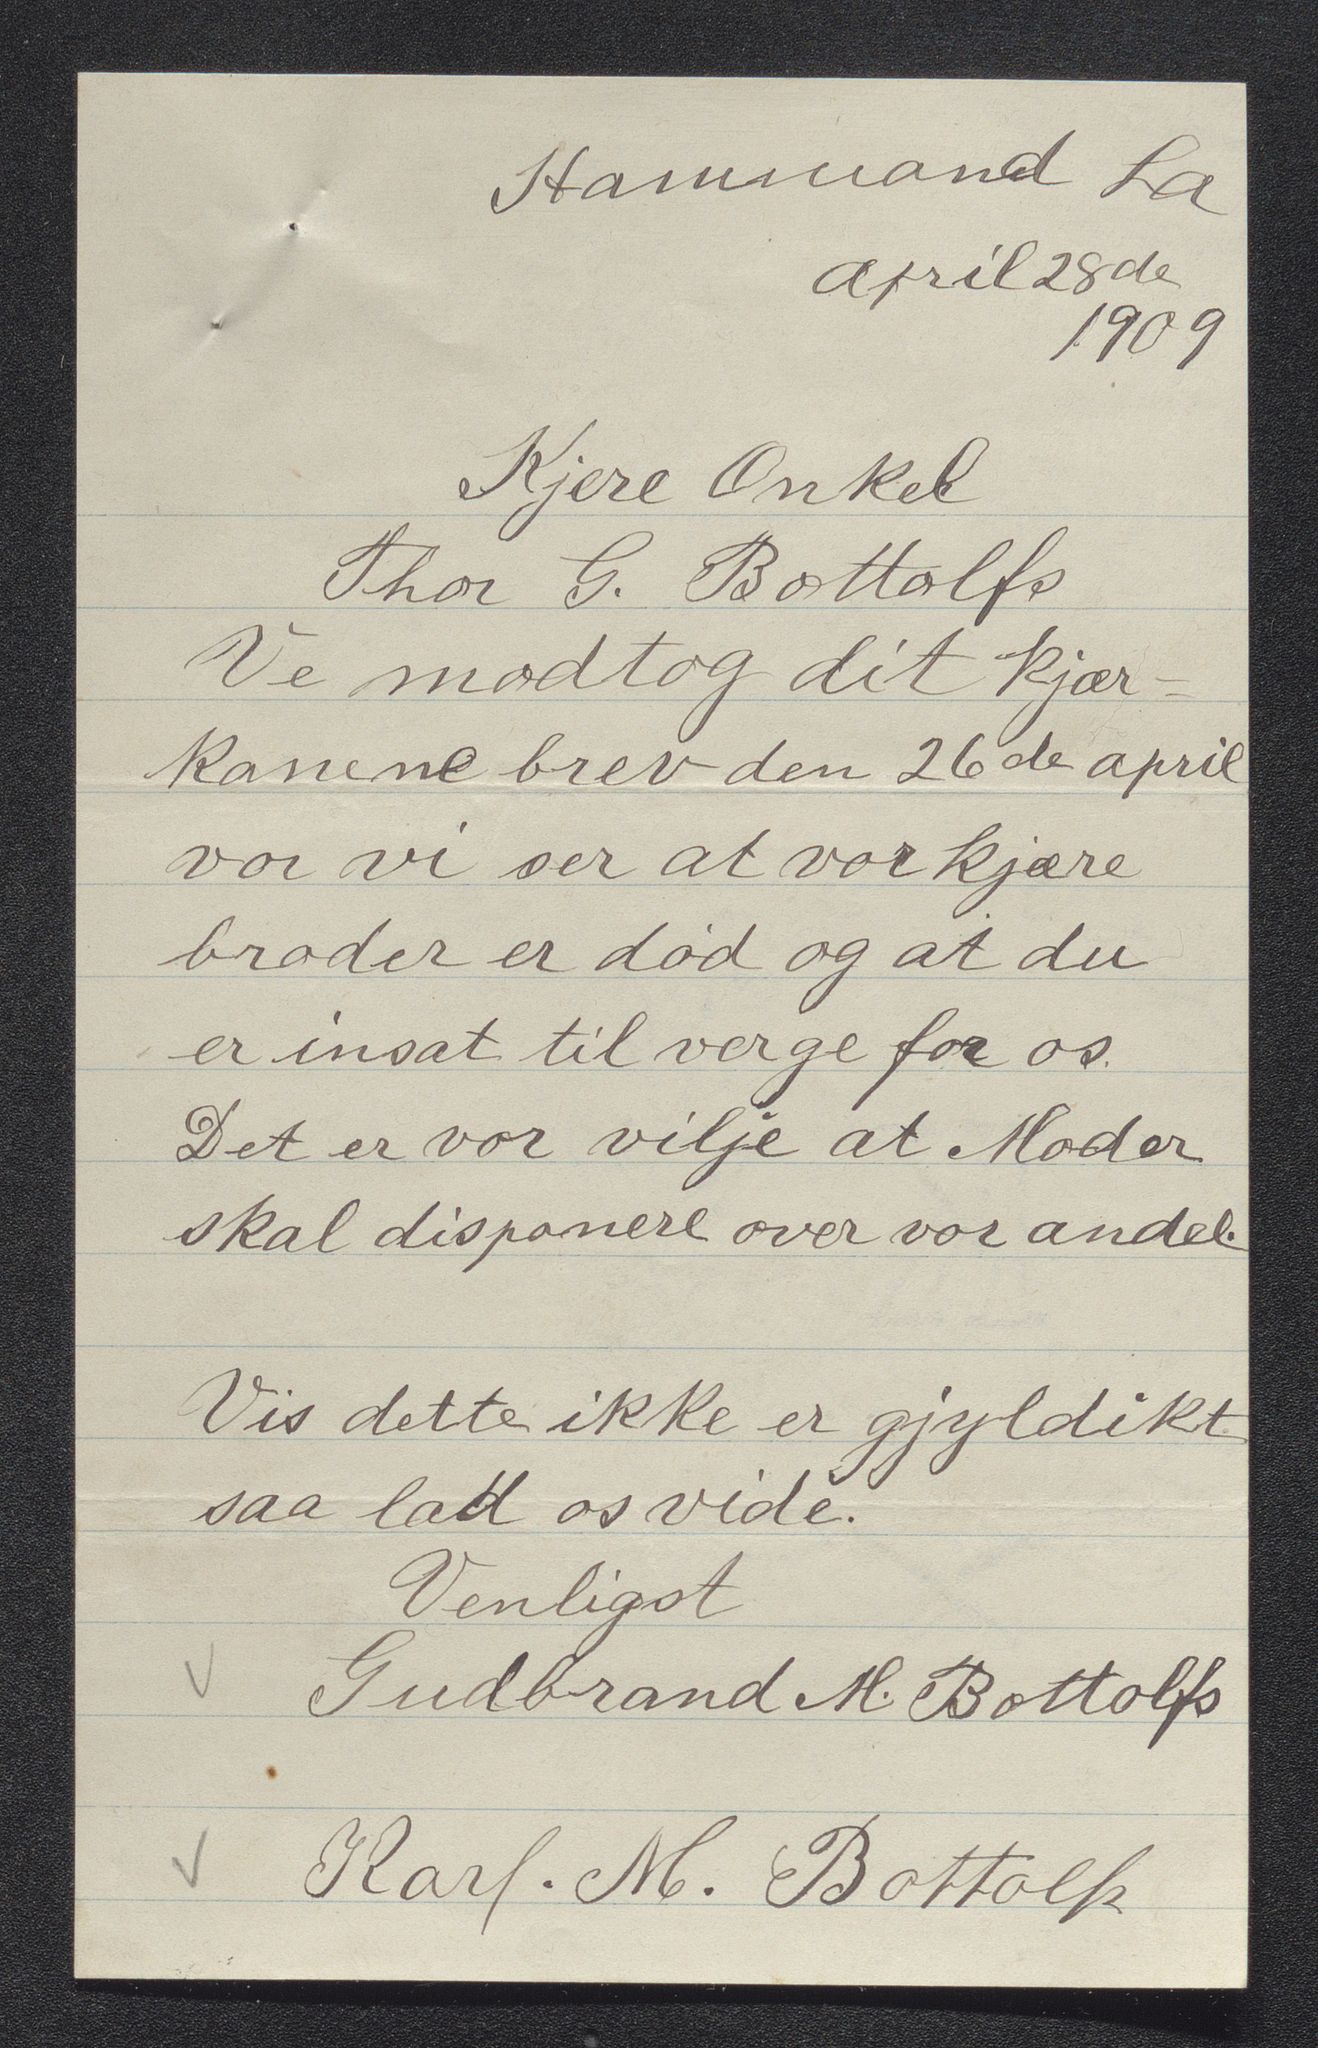 Hammand La
april 28de
1909
Kjere Onkel
Thor G. Bottolfs
Ve modtog dit kjær-
kanene brev den 26de april
vor vi ser at vor kjære
broder er død og at du
er insat til verge for os.
Det er vor vilje at Moder
skal disponere over vor andel.
Vis dette ikke er gjyldikt
saa lad os vide.
Venligst
Gudbrand M. Bottolfs
Karl. M. Bottolfs